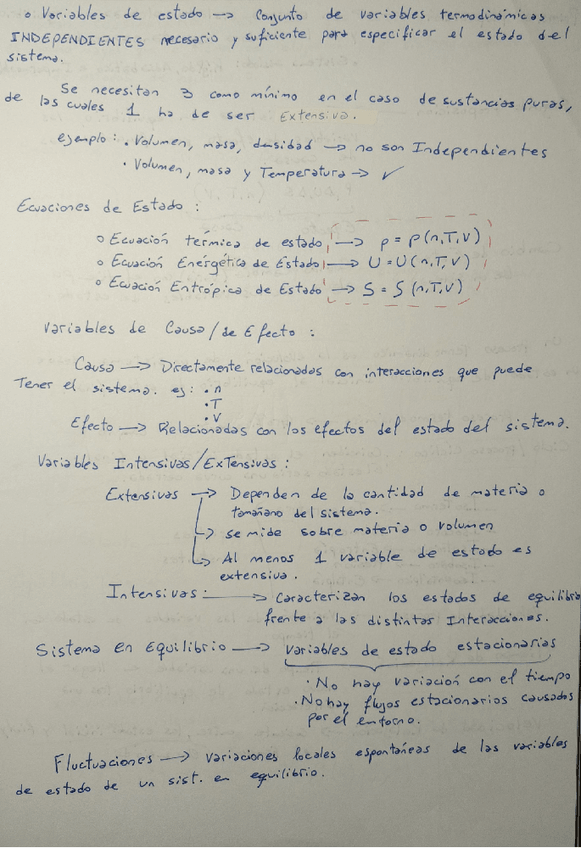 o Variables de estado → Conjunto de variables termodinámicas
INDEPENDIENTES necesario y suficiente para especificar el estado del
sistema.
Se necesitan 3 como mínimo en el caso de sustancias puras,
de las cuales 1 ha de ser Extensiva.
ejemplo: • Volumen, masa, densidad → no son Independientes
• Volumen, masa y Temperatura → ✓
Ecuaciones de Estado:
o Ecuación térmica de estado → p = p(n,T,V)
o Ecuación Energética de Estado → U = U(n,T,V)
o Ecuación Entrópica de Estado → S = S(n,T,V)
Variables de Causa/de Efecto:
Causa → Directamente relacionados con interacciones que puede
Tener el sistema. ej: • n
• T
• V
Efecto → Relacionadas con los efectos del estado del sistema.
Variables Intensivas/ExTensivas:
Extensivas → Dependen de la cantidad de materia o
tamaño del sistema.
↳ se mide sobre materia o volumen
↳ Al menos 1 variable de estado es
extensiva.
Intensivas: → Caracterizan los estados de equilibrio
frente a las distintas Interacciones.
Sistema en Equilibrio → variables de estado estacionarias
• No hay variación con el tiempo
• No hay flujos estacionarios causados
por el entorno.
Fluctuaciones → variaciones locales espontáneas de las variables
de estado de un sist. en equilibrio.